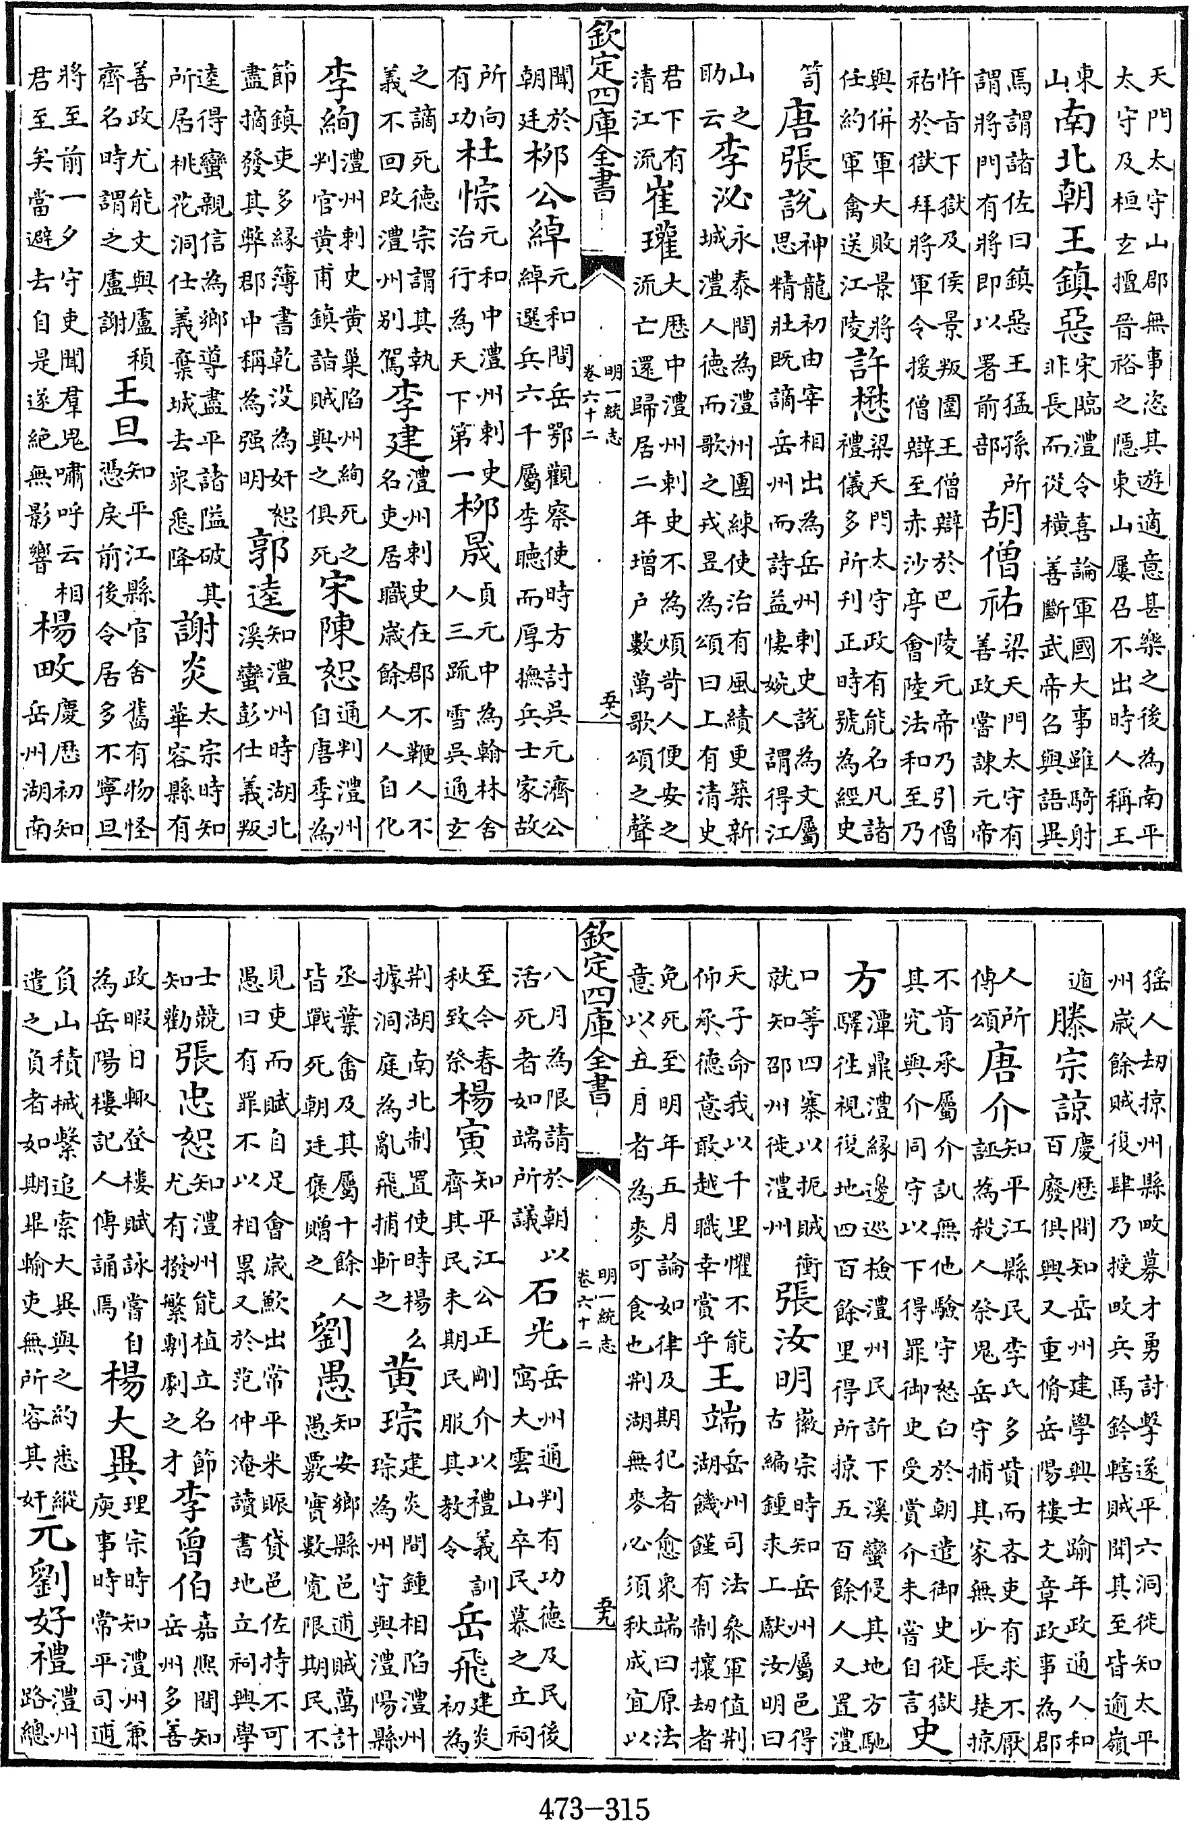 天門太守山郡無事恣其遊適意甚樂之後為南平太守及桓玄擅晉裕之隱東山屢召不出時人稱王
東山南北朝王鎮惡宋臨澧令喜論軍國大事雖騎射非長而從橫善斷武帝召與語異
焉謂諸佐曰鎮惡王猛孫所謂將門有將即以署前部胡僧祐梁天門太守有善政嘗諫元帝
忤旨下獄及侯景叛圍王僧辯於巴陵元帝乃引僧祐於獄拜將軍令援僧辯至赤沙亭會陸法和至乃
與併軍大敗景將任約軍禽送江陵許懋梁天門太守政有能名凡諸禮儀多所刊正時號為經史
笥唐張說神龍初由宰相出為岳州刺史說為文屬思精壯既謫岳州而詩益悽婉人謂得江
山之助云李泌永泰間為澧州團練使治有風績更築新城澧人德而歌之戎昱為頌曰上有清史
君下有清江流崔瓘大歷中澧州刺史不為煩苛人便安之流亡還歸居二年增户數萬歌頌之聲
欽定四庫全書 明一統志 卷六十二 五八
聞於朝廷柳公綽元和間岳鄂觀察使時方討吳元濟公綽選兵六千屬李聽而厚撫兵士家故
所向有功杜悰元和中澧州刺史治行為天下第一柳晟貞元中為翰林舍人三疏雪吳通玄
之謫死德宗謂其執義不回改澧州别駕李建澧州刺史在郡不鞭人不名吏居職歲餘人人自化
李絢澧州刺史黄巢陷州絢死之判官黄甫鎮詣賊與之俱死宋陳恕通判澧州自唐季為
節鎮吏多緣簿書乾没為奸恕盡擿發其弊郡中稱為强明郭逵知澧州時湖北溪蠻彭仕義叛
逵得蠻親信為鄉導盡平諸隘破其所居桃花洞仕義棄城去衆悉降謝炎太宗時知華容縣有
善政尤能文與盧稹齊名時謂之盧謝王旦知平江縣官舍舊有物怪憑戾前後令居多不寧旦
將至前一夕守吏聞羣鬼嘯呼云相君至矣當避去自是遂絶無影響楊畋慶歷初知岳州湖南
猺人刼掠州縣畋募才勇討擊遂平六洞徙知太平州歲餘賊復肆乃授畋兵馬鈐轄賊聞其至皆逾嶺
遁滕宗諒慶歷間知岳州建學興士踰年政通人和百廢俱興又重脩岳陽樓文章政事為郡
人所傳頌唐介知平江縣民李氏多貲而吝吏有求不厭誣為殺人祭鬼岳守捕其家無少長楚掠
不肯承屬介訊無他驗守怒白於朝遣御史徙獄其究與介同守以下得罪御史受賞介未嘗自言史
方潭鼎澧緣邊巡檢澧州民訴下溪蠻侵其地方馳驛徃視復地四百餘里得所掠五百餘人又置澧
口等四寨以扼賊衝就知邵州徙澧州張汝明徽宗時知岳州屬邑得古編鍾求上獻汝明曰
天子命我以千里懼不能仰承德意敢越職幸賞乎王端岳州司法叅軍值荆湖饑饉有制攘刼者
免死至明年五月論如律及期犯者愈衆端曰原法意以五月者為麥可食也荆湖無麥必須秋成宜以
欽定四庫全書 明一統志 卷六十二 五九
八月為限請於朝以活死者如端所議石光岳州通判有功德及民後寓大雲山卒民慕之立祠
至今春秋致祭楊寅知平江公正剛介以禮義訓齊其民未期民服其教令岳飛建炎初為
荆湖南北制置使時楊么據洞庭為亂飛捕斬之黄琮建炎間鍾相陷澧州琮為州守與澧陽縣
丞葉畬及其屬十餘人皆戰死朝廷褒贈之劉愚知安鄉縣邑逋賊萬計愚覈實數寛限期民不
見吏而賦自足會歲歉出常平米賑貸邑佐持不可愚曰有罪不以相累又於范仲淹讀書地立祠興學
士競知勸張忠恕知澧州能植立名節尤有撥繁剸劇之才李曾伯嘉熙間知岳州多善
政暇日輙登樓賦詠嘗自為岳陽樓記人傳誦焉楊大異理宗時知澧州兼庾事時常平司逋
負山積械繫追索大異與之約悉縱遣之負者如期畢輸吏無所容其奸元劉好禮澧州路總
473-315